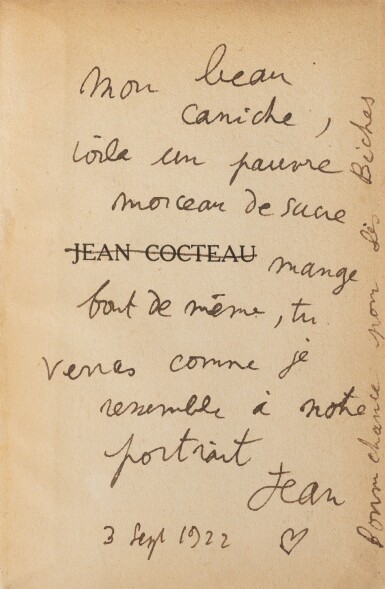 Mon beau
caniche,
voila un pauvre
morceau de sucre
JEAN COCTEAU
mange
tout de même, tu
verras comme je
ressemble à notre
portrait
Jean
3 Sept 1922 ♡
Bonne chance pour Les Biches